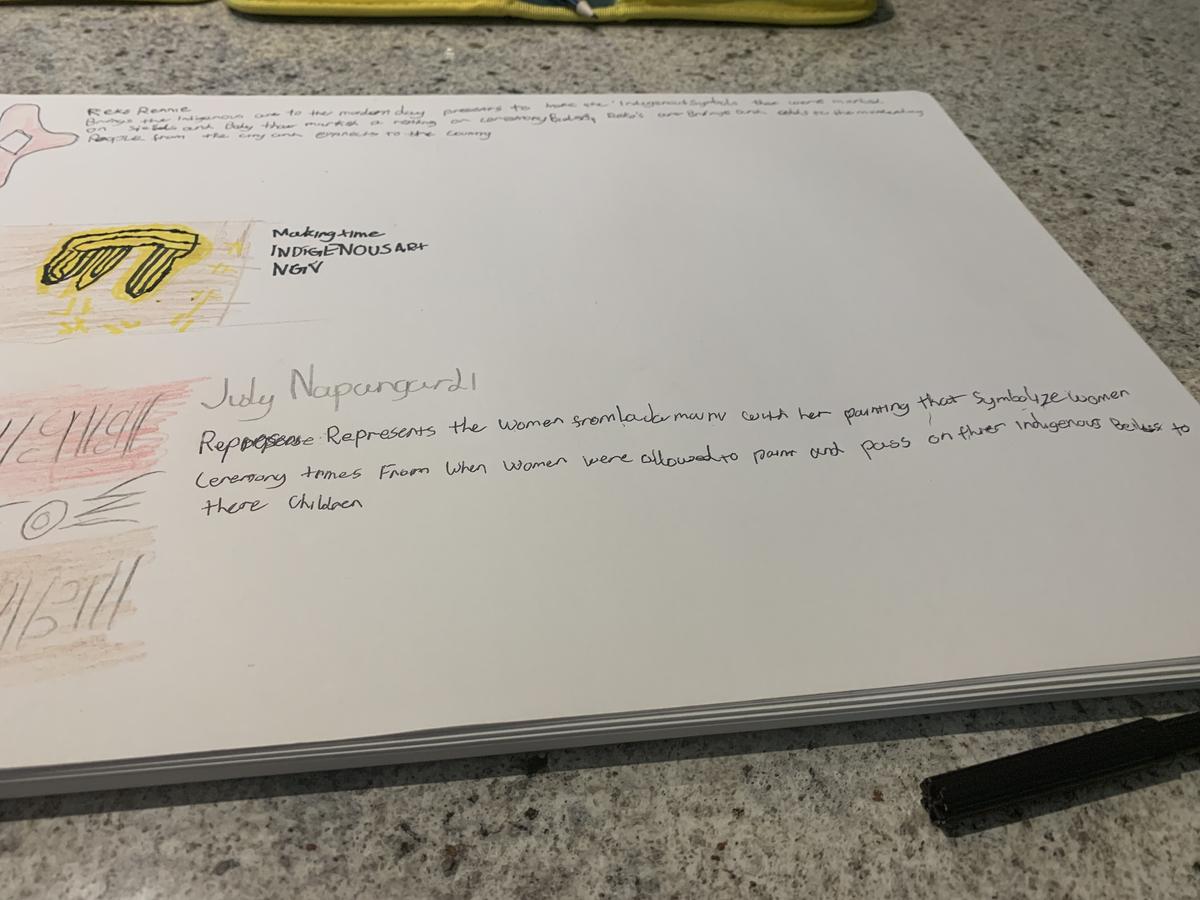 Reko Rennie
Brings the Indigenous art to the modern day presents to have the Indigenous Symbols that were marked
on Sields and Body that marked a meaning or ceremony Reko's art Brings and adds to the
People from the city and connects to the country
Making time
INDIGENOUS Art
NGV
Judy Napangardi
Represents the women from with her painting that Symbolize women
Ceremony times From when women were allowed to paint and pass on Indigenous to
there Children